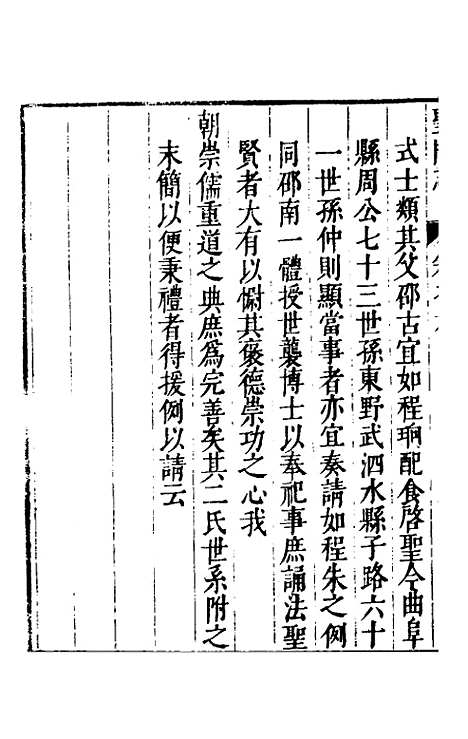 式士類其父邵古宜如程珦配食啓聖今曲阜
縣周公七十三世孫東野武泗水縣子路六十
一世孫仲則顯當事者亦宜奏請如程朱之例
同邵南一體授世襲博士以奉祀事庶誦法聖
賢者大有以慰其褒德崇功之心我
朝崇儒重道之典庶爲完善矣其二氏世系附之
末簡以便秉禮者得援例以請云